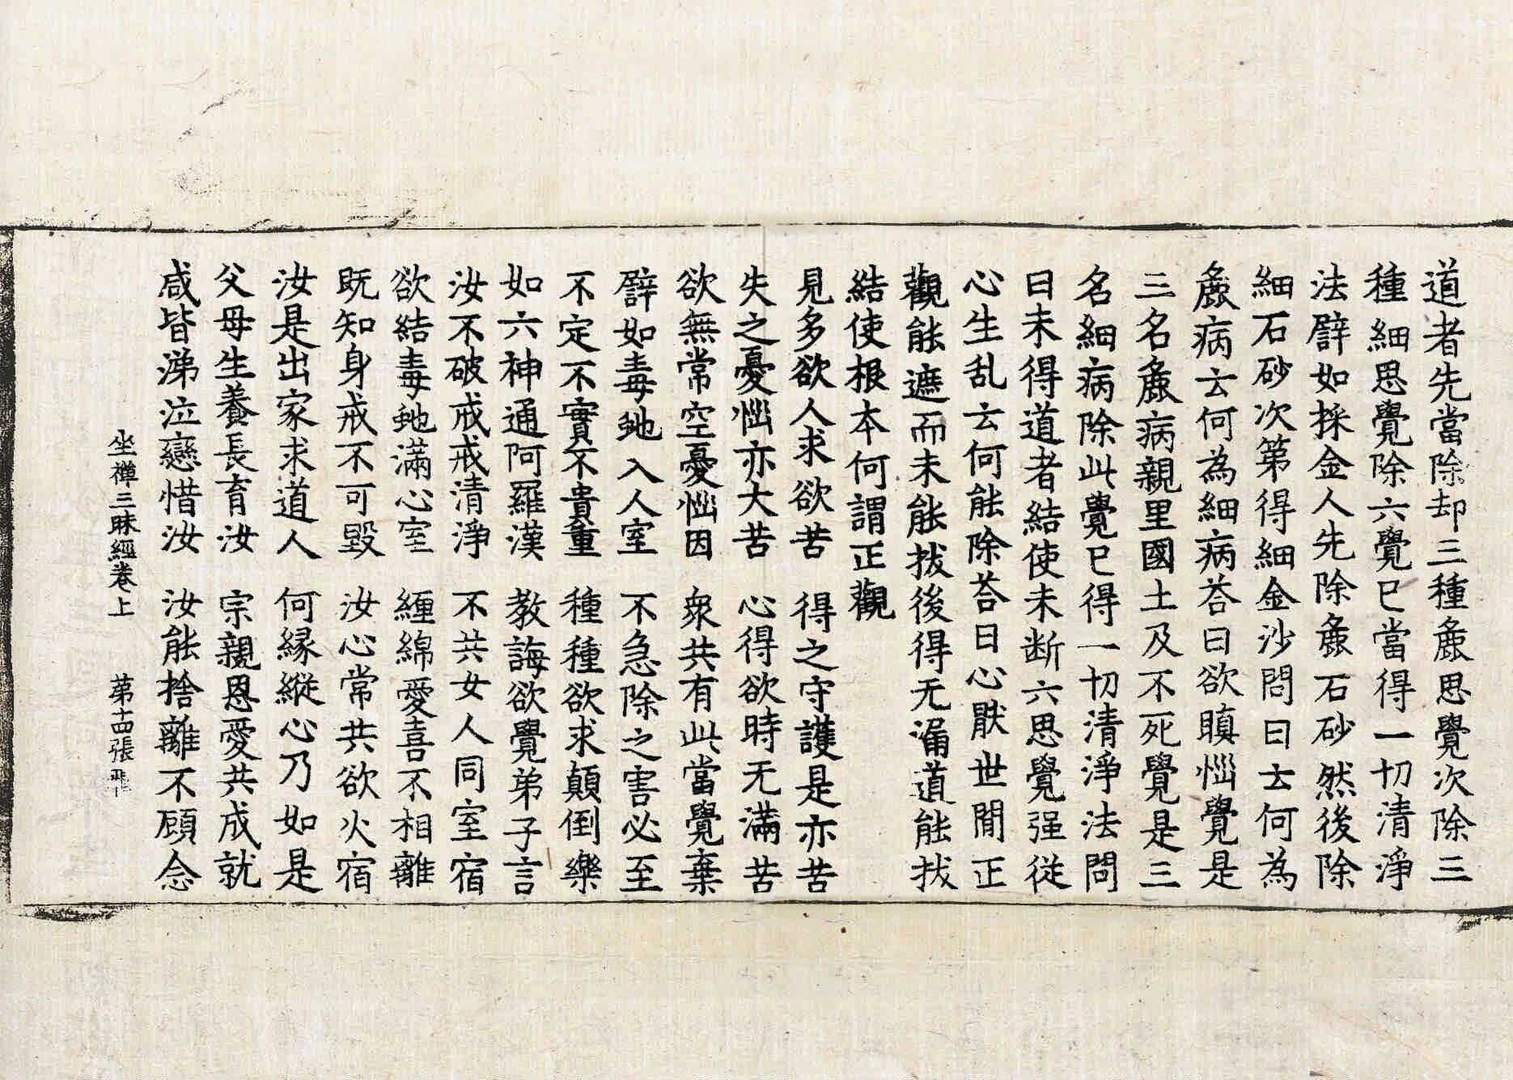 道者先當除却三種麁思覺次除三
種細思覺除六覺已當得一切清淨
法譬如採金人先除麁石砂然後除
細石砂次第得細金沙問曰云何為
麁病云何為細病荅曰欲瞋惱覺是
三名麁病親里國土及不死覺是三
名細病除此覺已得一切清淨法問
曰未得道者結使未断六思覺强從
心生乱云何能除荅曰心猒世閒正
觀能遮而未能拔後得无漏道能拔
結使根本何謂正觀
見多欲人求欲苦　得之守護是亦苦
失之憂惱亦大苦　心得欲時无滿苦
欲無常空憂惱因　衆共有此當覺棄
譬如毒虵入人室　不急除之害必至
不定不實不貴重　種種欲求顛倒樂
如六神通阿羅漢　教誨欲覺弟子言
汝不破戒戒清淨　不共女人同室宿
欲結毒虵滿心室　纏綿愛喜不相離
既知身戒不可毀　汝心常共欲火宿
汝是出家求道人　何緣縱心乃如是
父母生養長育汝　宗親恩愛共成就
咸皆涕泣戀惜汝　汝能捨離不顧念
坐禪三昧經卷上　第十四張